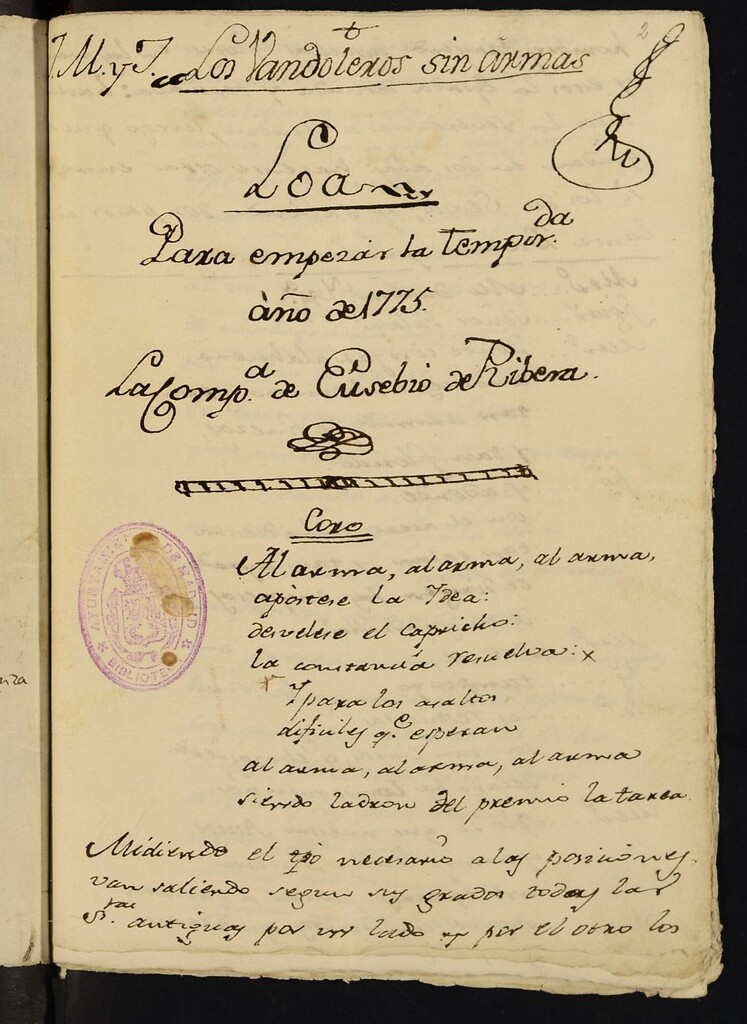 J. M. y J. Los Vandoleros sin armas
2
Loa
Para empezar la tempor.da
año de 1775.
La Comp.a de Eusebio de Ribera.
Coro
Al arma, al arma, al arma,
apóstese la Idea:
desvelese el capricho:
la constancia resuelva:
Y para los asaltos
dificiles q.e esperan
al arma, al arma, al arma
siendo ladron del premio la tarea
Midiendo el tpo necesario a las posiciones,
van saliendo segun sus grados todas las
S.ras antiguas por un lado y por el otro los
AYUNTAMIENTO DE MADRID
BIBLIOTECA